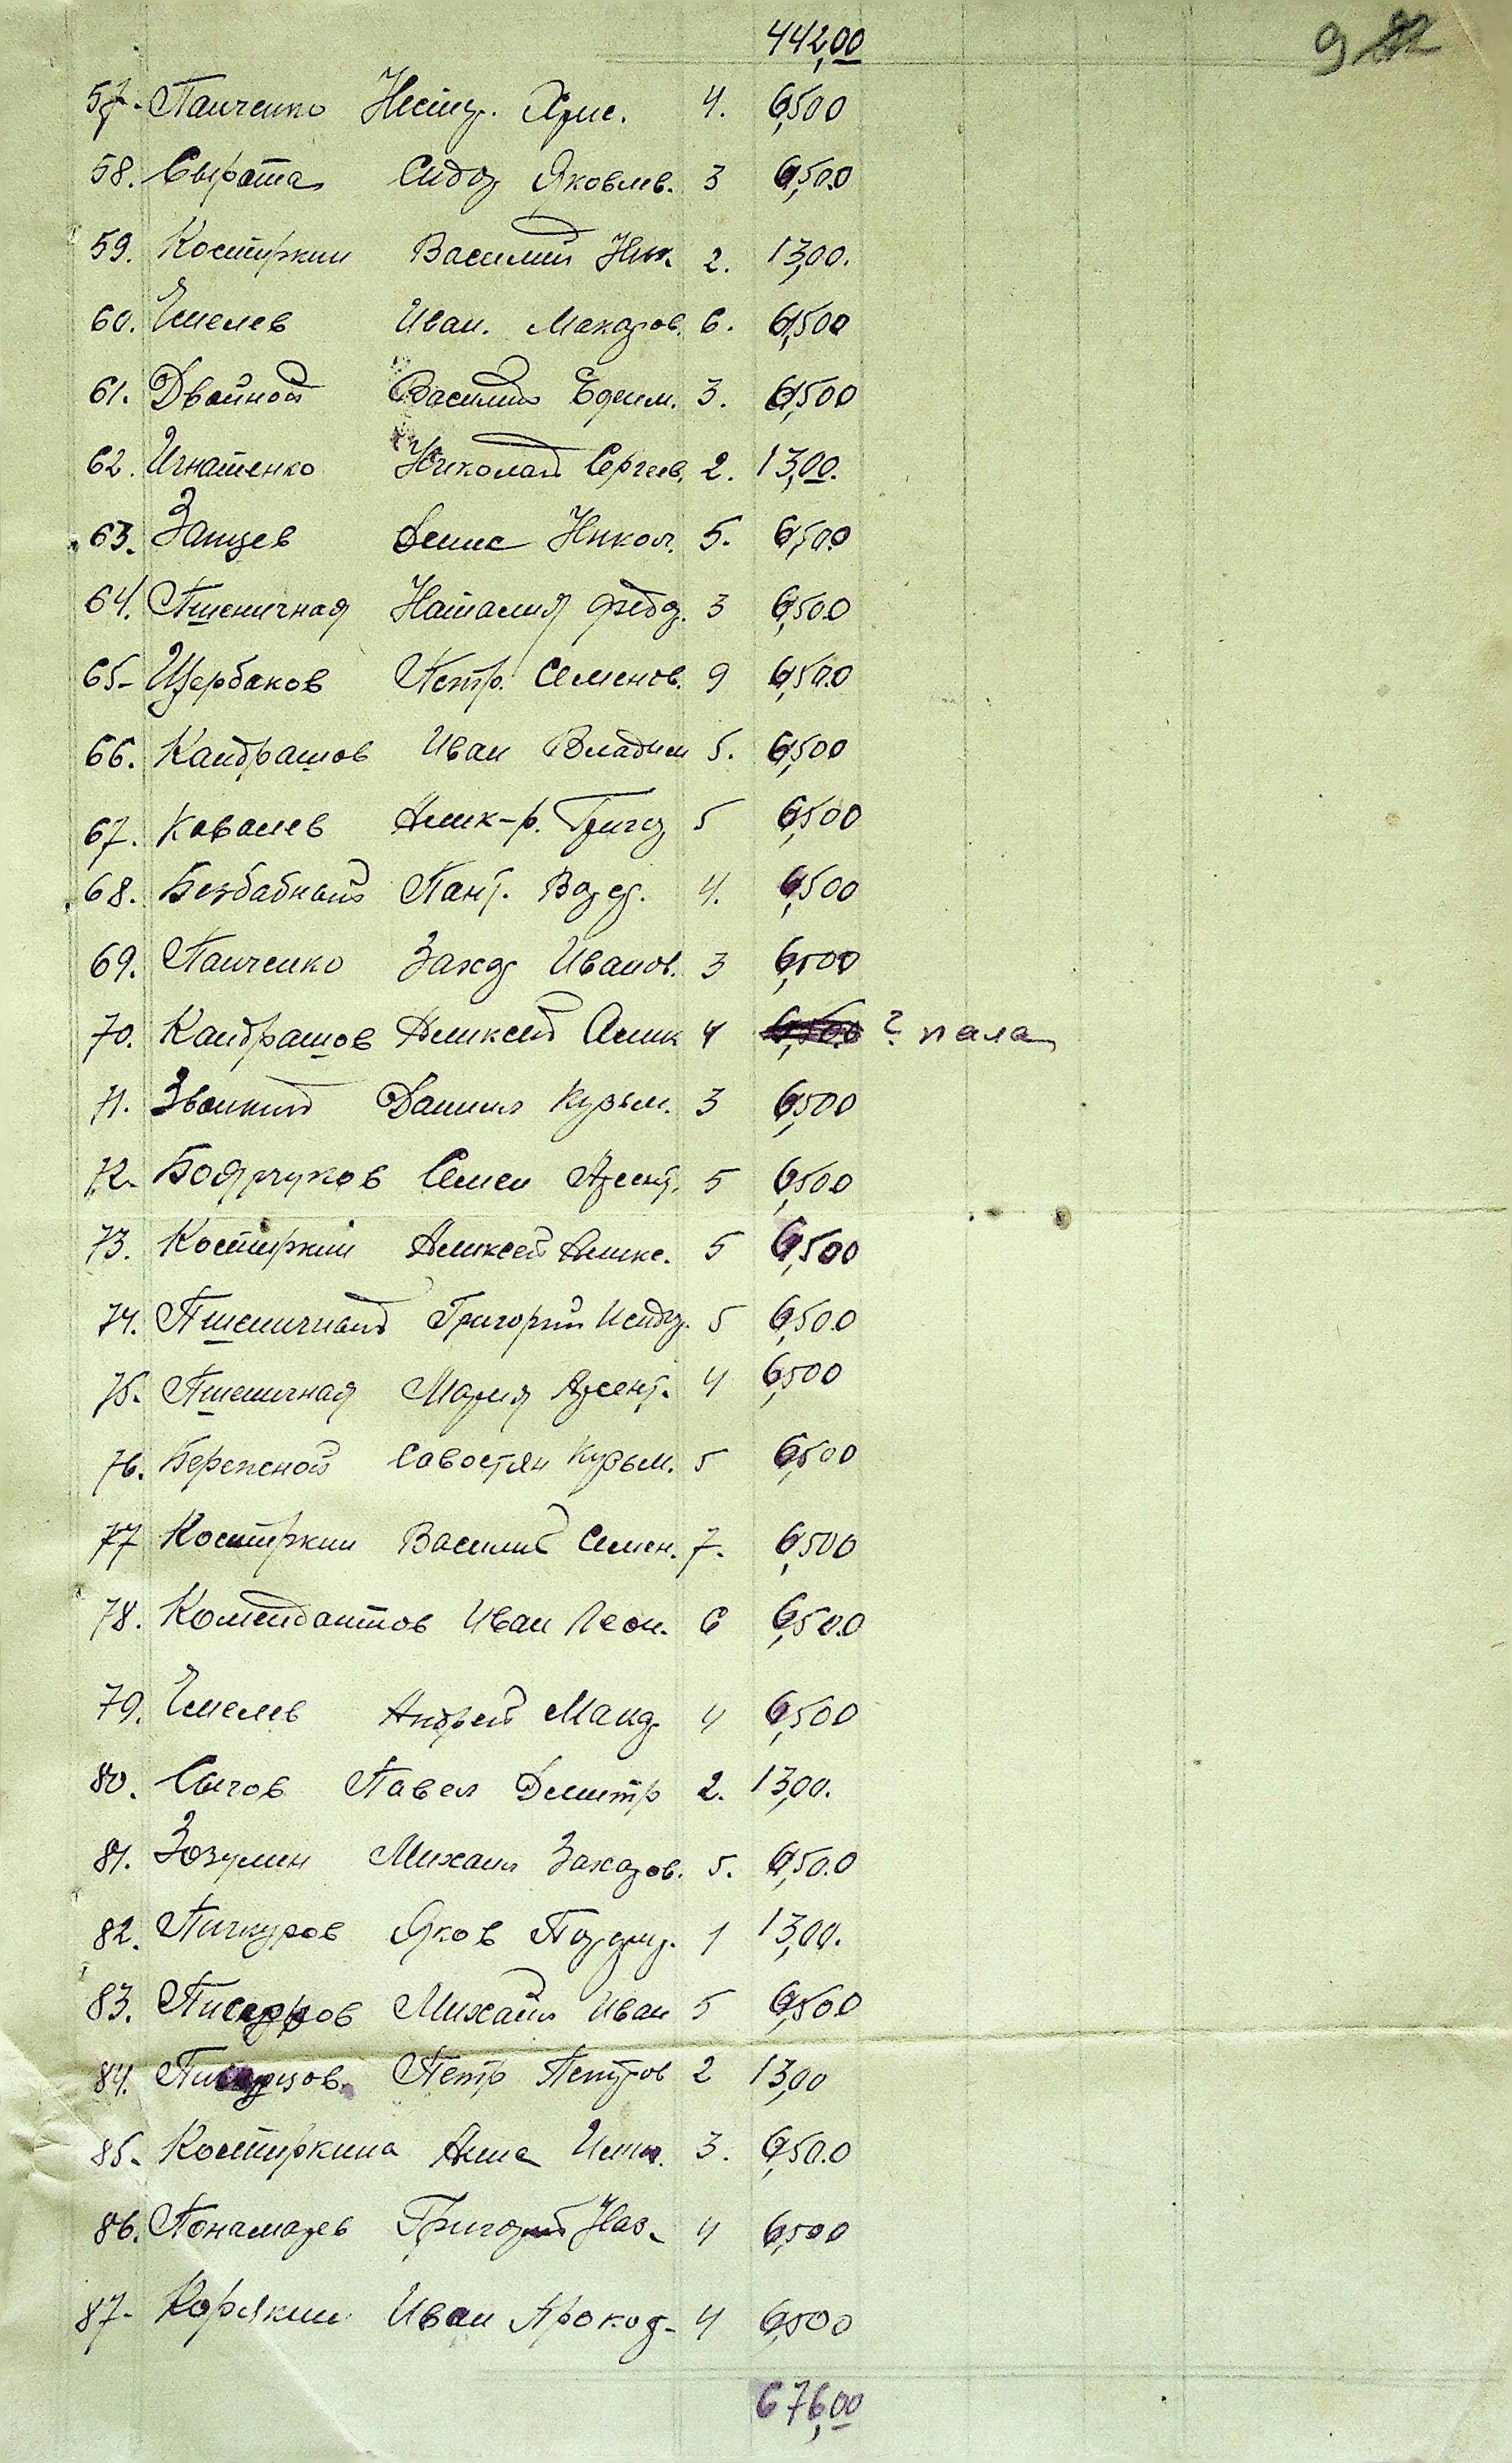 442,00
9
57. Панченко Нестер. Арис. 4. 6,500
58. Сырота Сидор Яковлев. 3 6,500
59. Костиркин Василий Ник. 2. 13,00.
60. Чмелев Иван. Макаров. 6. 6,500
61. Двойной Василий Ефим. 3. 6,500
62. Игнатенко Николай Сергеев. 2. 13,00.
63. Зайцев Денис Никол. 5. 6,500
64. Пшеничная Наталия Федор. 3 6,500
65- Щербаков Петр. Семенов. 9 6,500
66. Кандрашов Иван Владим 5. 6,500
67. Ковалев Алик-р. Григор 5 6,500
68. Безбабный Пант. 4. 6,500
69. Панченко Захар Иванов. 3 6,500
70. Кандрашов Аликсей Алик 4 6,500 ? пала
71. Звонкий Данил Кузьм. 3 6,500
72. Боярчуков Семен Арсент. 5 6,500
73. Костиркин Аликсей Алике. 5 6,500
74. Пшеничный Григорий Исидор. 5 6,500
75. Пшеничная Мария Арсент. 4 6,500
76. Бережной Савостян Кузьм. 5 6,500
77 Костиркин Василий Семен. 7. 6,500
78. Комендантов Иван Леон. 6 6,500
79. Чмелев Андрей Макар 4 6,500
80. Сычов Павел Дмитр 2. 13,00.
81. Зозулин Михаил Захаров. 5. 6,500
82. Пичкуров Яков 1 13,00.
83. Михаил Иван 5 6,500
84. Петр Петров 2 13,00
85. Костиркина Анна 3. 6,500
86. Понамарев Григорий Наз. 4 6,500
87- Корякин Иван Прокор- 4 6,500
676,00